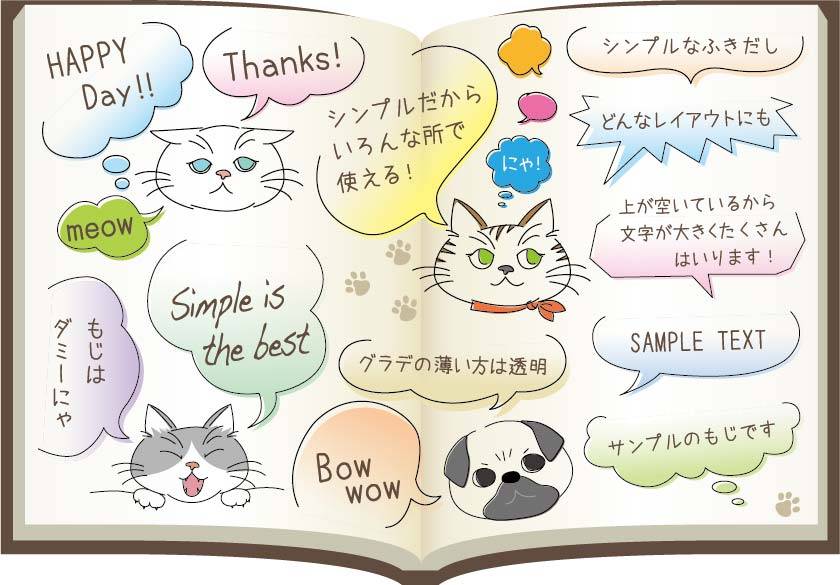 HAPPY
Day!!
Thanks!
meow
シンプルだから
いろんな所で
使える!
Simple is
the best
もじは
ダミーにゃ
グラデの薄い方は透明
Bow
wow
にゃ!
シンプルなふきだし
どんなレイアウトにも
上が空いているから
文字が大きくたくさん
はいります!
SAMPLE TEXT
サンプルのもじです